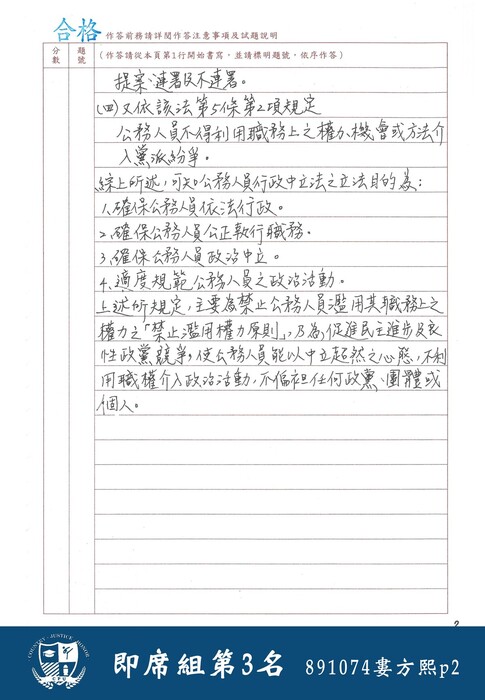 合格 作答前務請詳閱作答注意事項及試題說明
分數
題號
(作答請從本頁第1行開始書寫，並請標明題號，依序作答)
提案、連署及不連署。
(四)又依該法第5條第2項規定
公務人員不得利用職務上之權力、機會或方法介
入黨派紛爭。
綜上所述，可知公務人員行政中立法之立法目的為：
1.確保公務人員依法行政。
2.確保公務人員公正執行職務。
3.確保公務人員政治中立。
4.適度規範公務人員之政治活動。
上述所規定，主要為禁止公務人員濫用其職務上之
權力之「禁止濫用權力原則」，乃為促進民主進步及良
性政黨競爭，使公務人員能以中立超然之心態，不利
用職權介入政治活動，不偏袒任何政黨、團體或
個人。
2
即席組第3名 891074婁方熙p2